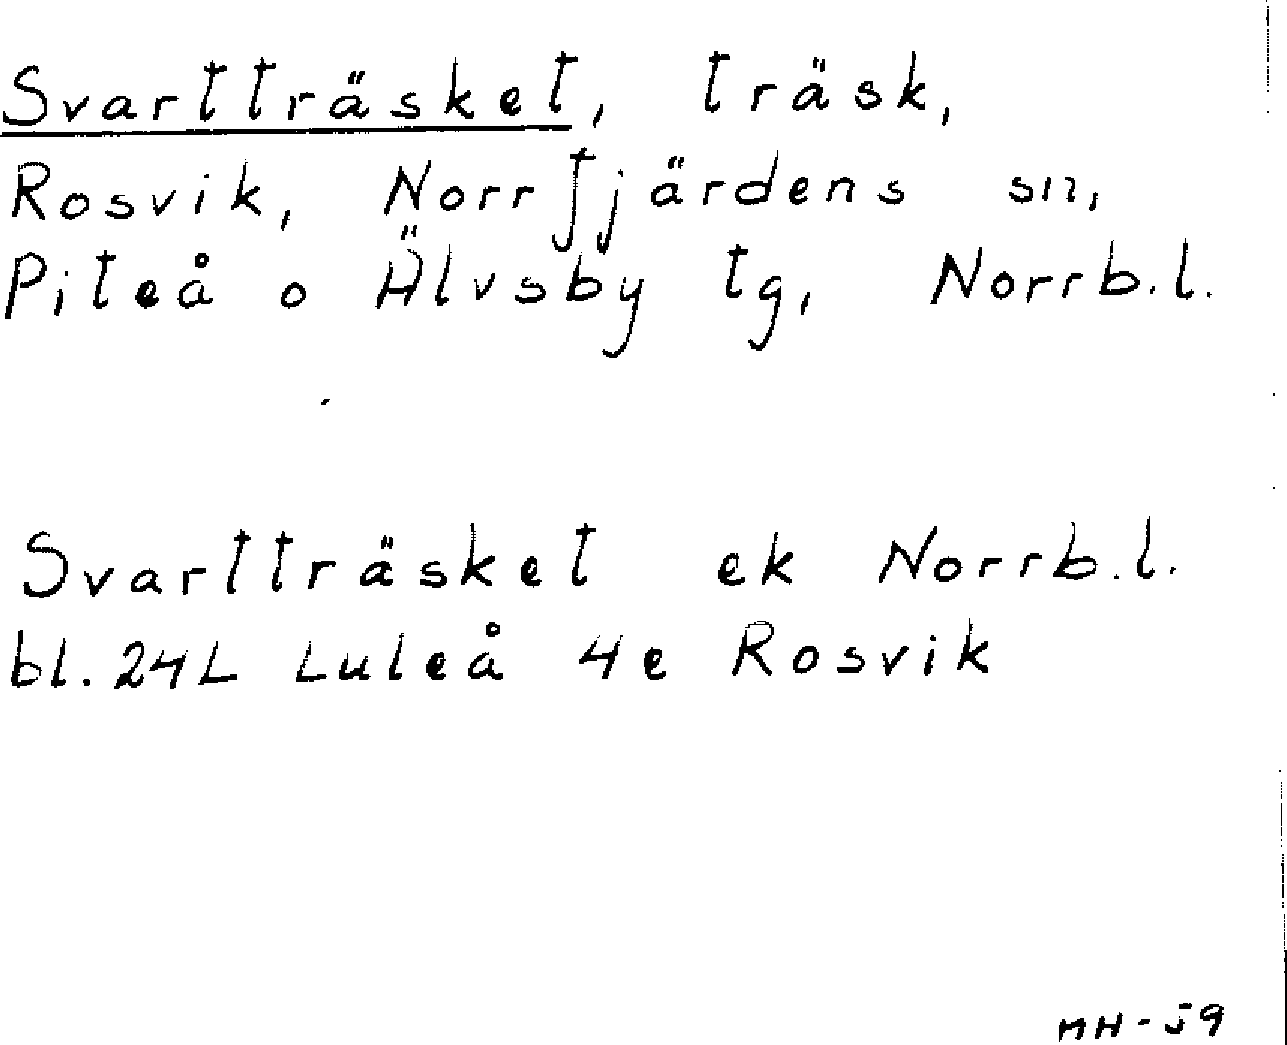 Svartträsket, träsk,
Rosvik, Norrfjärdens sn,
Piteå o Älvsby tg, Norrb.l.
Svartträsket ek Norrb.l.
bl. 24L Luleå 4e Rosvik
MH-59